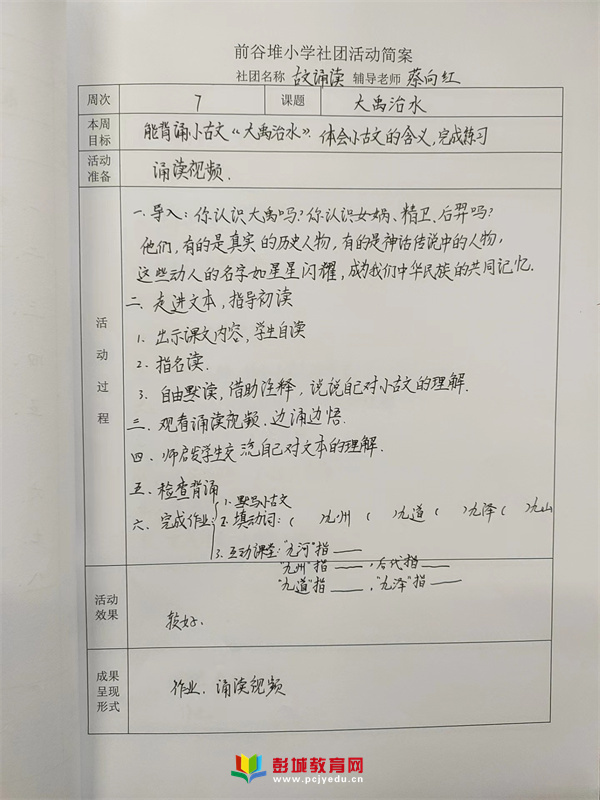 前谷堆小学社团活动简案
社团名称 古文诵读 辅导老师 蔡向红
周次 7 课题 大禹治水
本周目标 能背诵小古文《大禹治水》.体会小古文的含义,完成练习
活动准备 诵读视频.
活动过程
一.导入:你认识大禹吗?你认识女娲、精卫、后羿吗?
他们,有的是真实的历史人物,有的是神话传说中的人物,
这些动人的名字如星星闪耀,成为我们中华民族的共同记忆.
二.走进文本,指导初读
1.出示课文内容,学生自读
2.指名读.
3.自由默读,借助注释,说说自己对小古文的理解.
三.观看诵读视频.边诵边悟.
四.师启发学生交流自己对文本的理解.
五.检查背诵
六.完成作业 1.默写小古文
2.填动词:( )九州( )九道( )九泽( )九山
3.互动课堂:"九河"指——
"九州"指——,后代指——
"九道"指——,"九泽"指——
活动效果 较好.
成果呈现形式 作业.诵读视频
彭城教育网
www.pcjyedu.cn